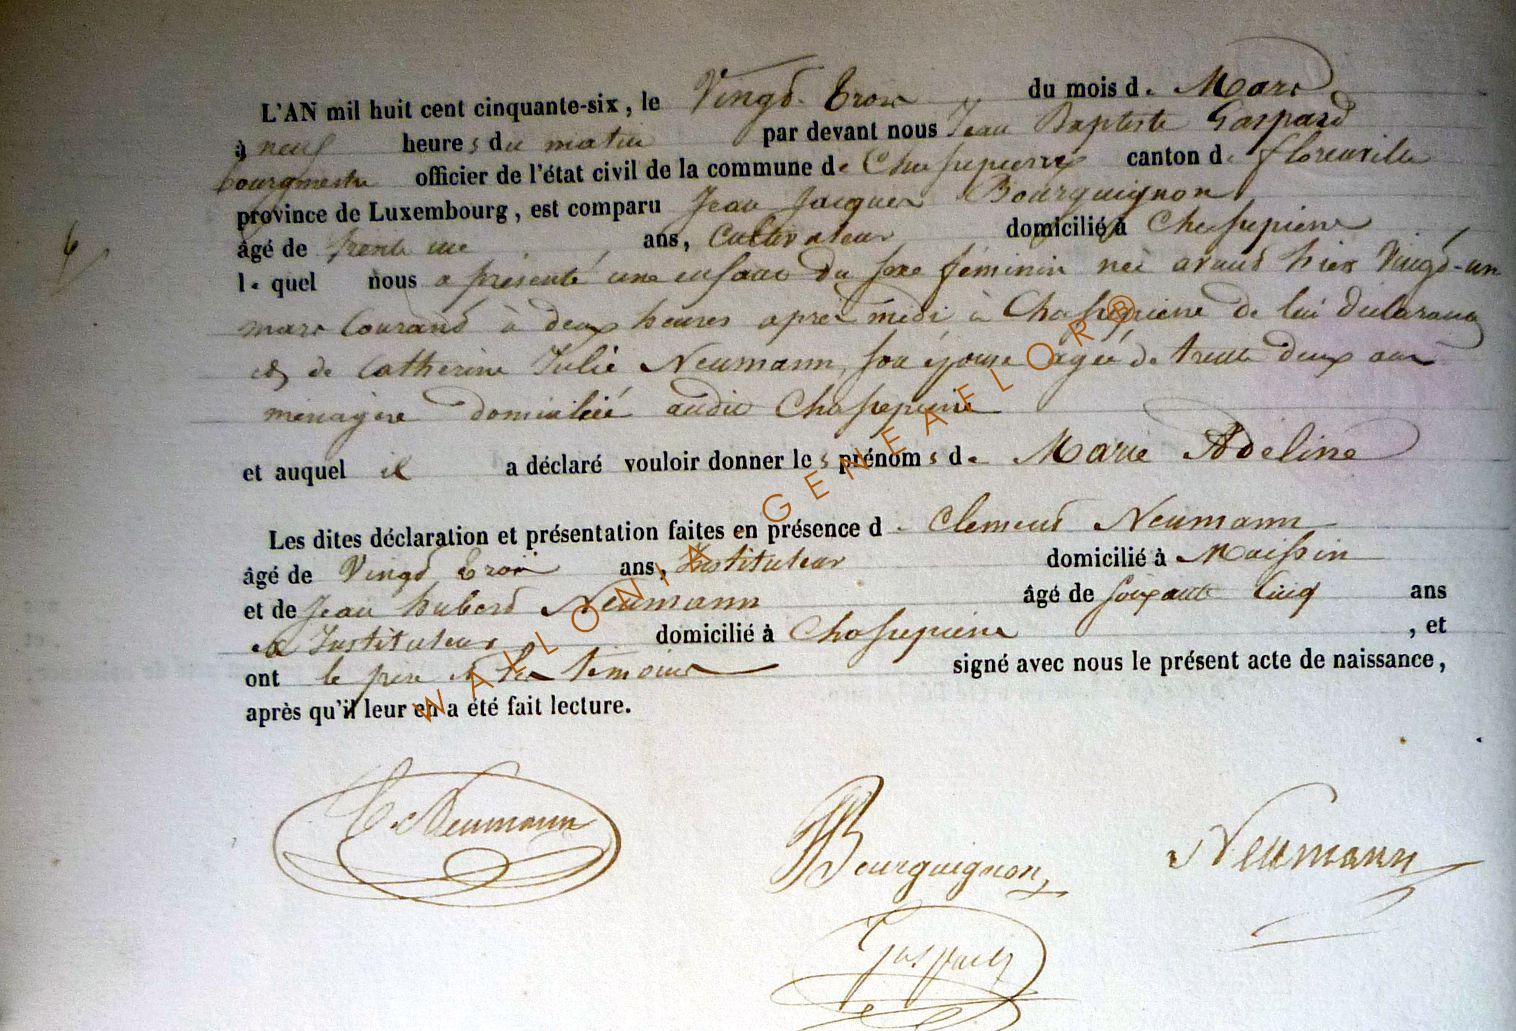 L'AN mil huit cent cinquante-six, le Vingt Trois du mois de Mars
à neuf heures du matin par devant nous Jean Baptiste Gaspard
bourgmestre officier de l'état civil de la commune de Chassepierre canton de florenville
province de Luxembourg, est comparu Jean Jacques Bourguignon
âgé de trente un ans, Cultivateur domicilié à Chassepierre
6
lequel nous a présenté une enfant du sexe féminin née avant hier Vingt-un
mars Courant à deux heures après midi à Chassepierre de lui déclarant
et de Catherine Julie Neumann, son épouse agée de trente deux ans
ménagère domiciliée audit Chassepierre
et auquel il a déclaré vouloir donner les prénoms de Marie Adeline
Les dites déclaration et présentation faites en présence de Clement Neumann
âgé de Vingt Trois ans, Instituteur domicilié à Maissin
et de Jean hubert Neumann âgé de soixante cinq ans
ex Instituteur domicilié à Chassepierre, et
ont le père et les témoins signé avec nous le présent acte de naissance,
après qu'il leur en a été fait lecture.
WALLONIA GENEAFLOR®
C. Neumann
JJBourguignon
Neumann
Gaspard